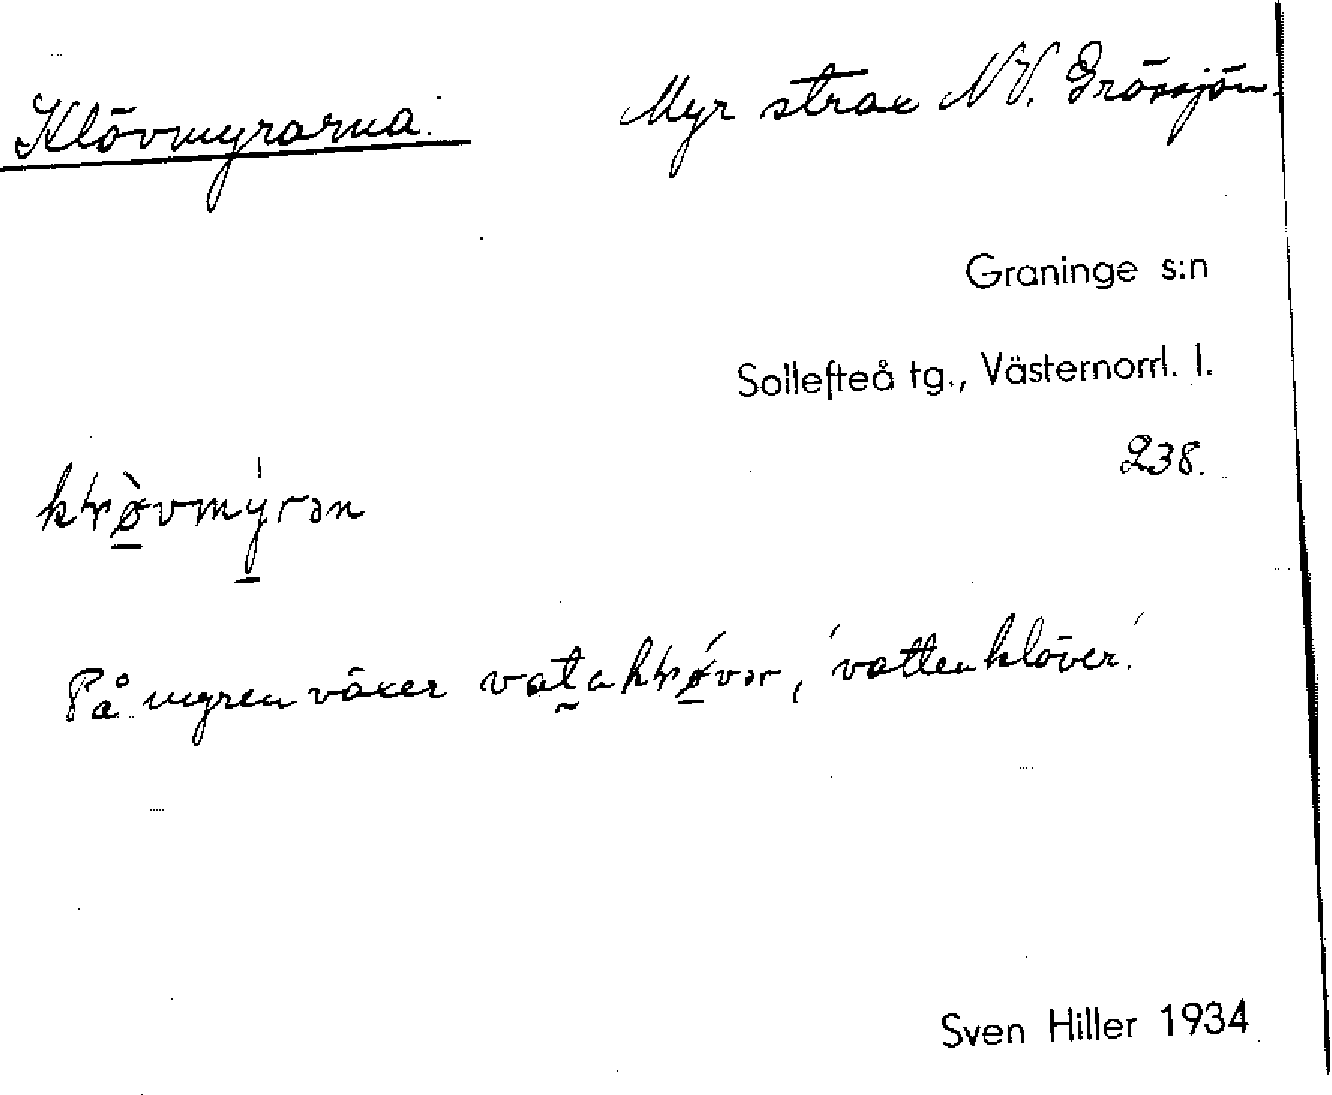 Klövmyrarna. Myr strax NV. Grössjön.
Graninge s:n
Sollefteå tg., Västernorrl. l.
238.
På myren växer , 'vattenklöver.'
Sven Hiller 1934